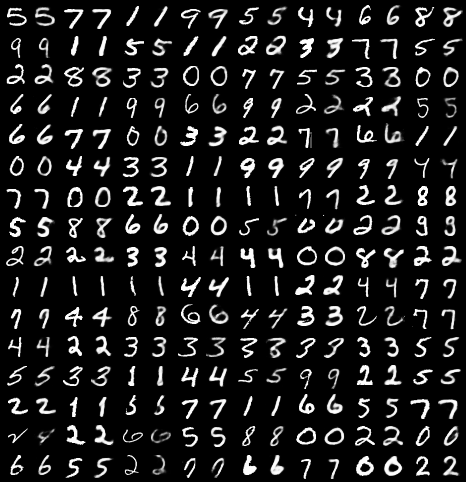 5 5 7 7 1 1 9 9 5 5 4 4 6 6 8 8
9 9 1 1 5 5 1 1 2 2 3 3 7 7 5 5
2 2 8 8 3 3 0 0 7 7 5 5 3 3 0 0
6 6 1 1 9 9 6 6 9 9 2 2 2 2 5 5
6 6 7 7 0 0 3 3 2 2 7 7 6 6 1 1
0 0 4 4 3 3 1 1 9 9 9 9 9 9 4 4
7 7 0 0 2 2 1 1 1 1 7 7 2 2 8 8
5 5 8 8 6 6 0 0 5 5 0 0 2 2 9 9
2 2 2 2 3 3 4 4 4 4 0 0 8 8 2 2
1 1 1 1 1 1 4 4 1 1 2 2 4 4 7 7
7 7 4 4 8 8 6 6 4 4 3 3 2 2 7 7
4 4 2 2 3 3 3 3 3 8 3 3 3 3 5 5
5 5 3 3 1 1 4 4 5 5 9 9 2 2 5 5
2 2 1 1 5 5 7 7 1 1 6 6 5 5 7 7
2 2 6 6 5 5 8 8 0 0 2 2 0 0
6 6 5 5 2 2 7 7 6 6 7 7 0 0 2 2